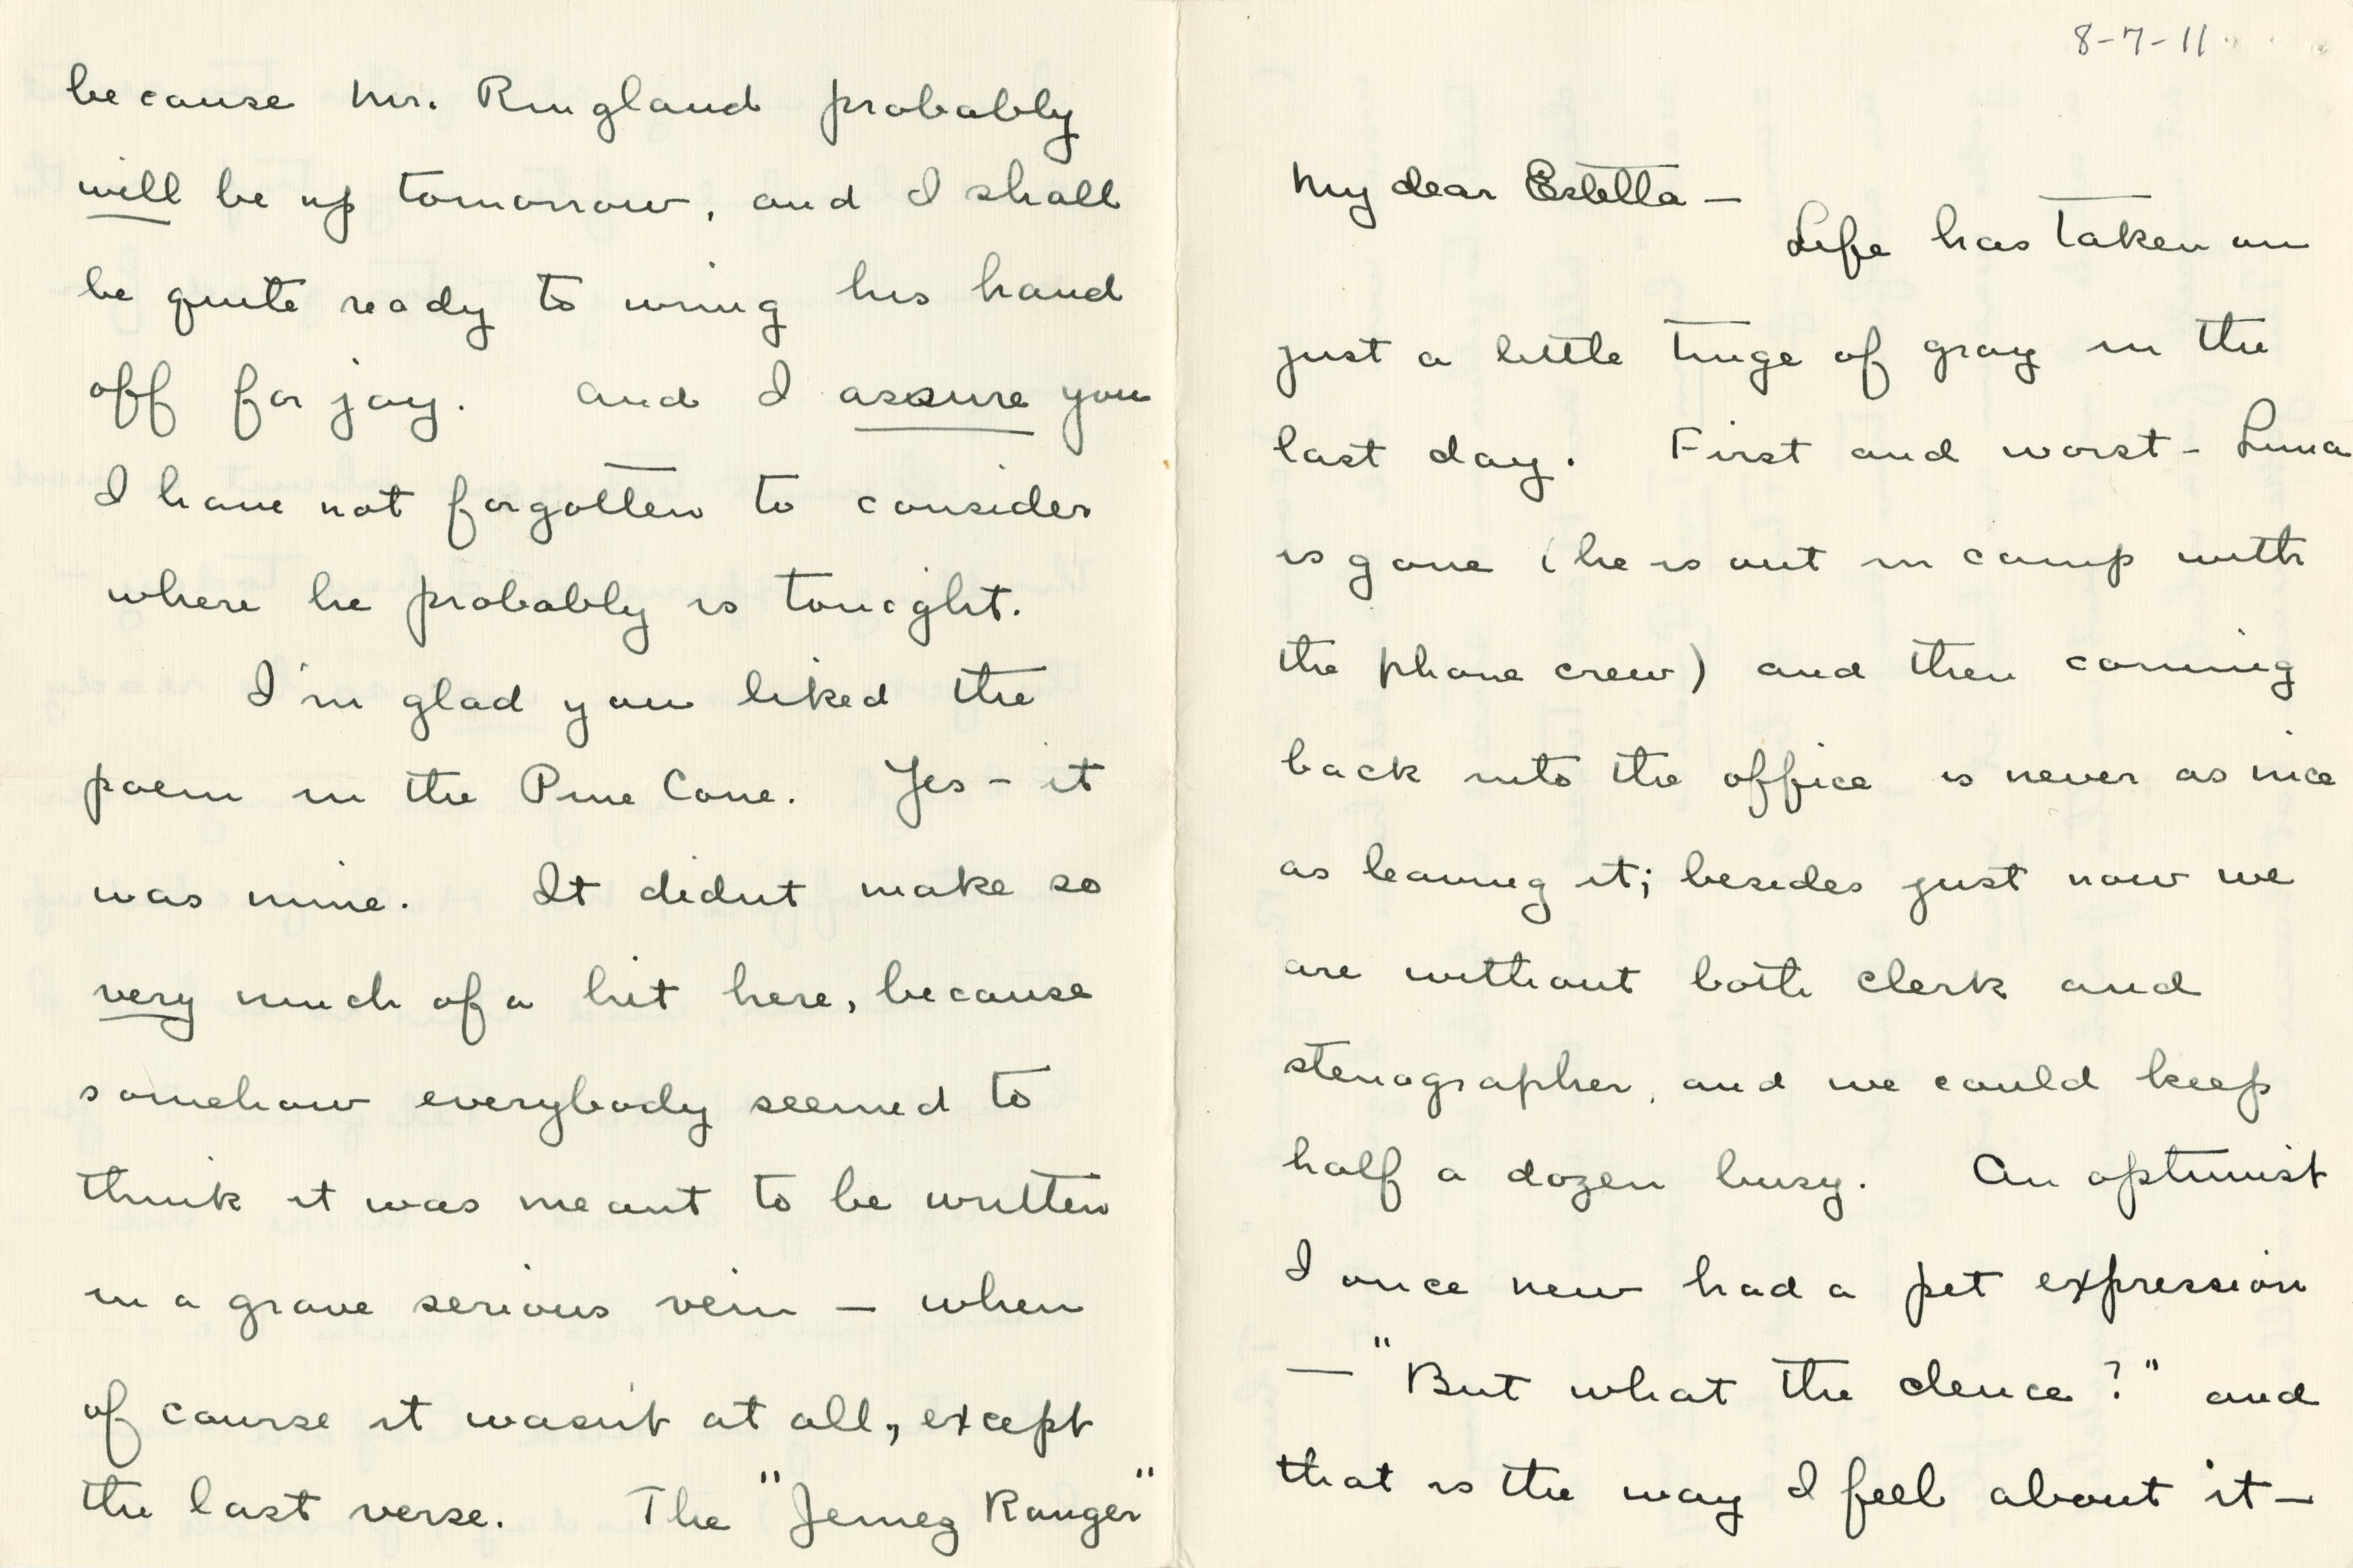 8-7-11
My dear Estella —
Life has taken on
just a little tinge of gray in the
last day. First and worst - Luna
is gone (he is out in camp with
the phone crew) and then coming
back into the office is never as nice
as leaving it; besides just now we
are without both clerk and
stenographer, and we could keep
half a dozen busy. An optimist
I once new had a pet expression
— "But what the deuce?" and
that is the way I feel about it —
because Mr. Ringland probably
will be up tomorrow, and I shall
be quite ready to wring his hand
off for joy. and I assure you
I have not forgotten to consider
where he probably is tonight.
I'm glad you liked the
poem in the Pine Cone. Yes - it
was mine. It didnt make so
very much of a hit here, because
somehow everybody seemed to
think it was meant to be written
in a grave serious vein — when
of course it wasn't at all, except
the last verse. The "Jemez Ranger"